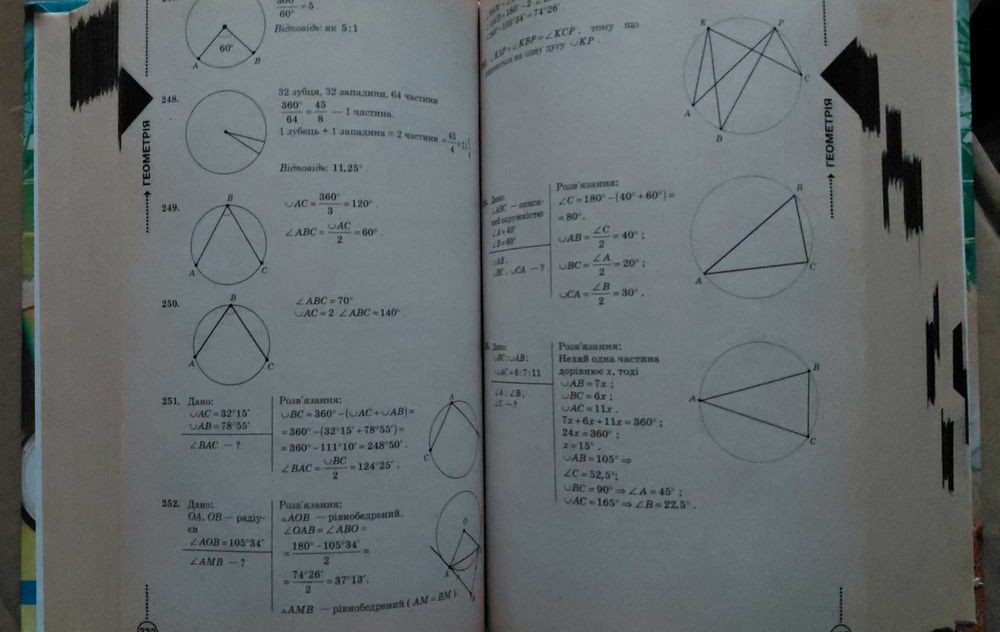 360°
60° = 5
Відповідь: як 5:1.
60°
A
B
ГЕОМЕТРІЯ
248.
32 зубця, 32 западини, 64 частини
360°/64 = 45/8 — 1 частина.
1 зубець + 1 западина = 2 частини = 45/4 = 11 1/4
Відповідь: 11,25°.
249.
∪AC = 360°/3 = 120°.
∠ABC = ∪AC/2 = 60°.
B
A
C
250.
∠ABC = 70°
∪AC = 2 ∠ABC = 140°
B
A
C
251.
Дано:
∪AC = 32°15′
∪AB = 78°55′
∠BAC — ?
Розв'язання:
∪BC = 360° − (∪AC + ∪AB) =
= 360° − (32°15′ + 78°55′) =
= 360° − 111°10′ = 248°50′.
∠BAC = ∪BC/2 = 124°25′.
A
C
252.
Дано:
OA, OB — радіу-
си
∠AOB = 105°34′
∠AMB — ?
Розв'язання:
△AOB — рівнобедрений.
∠OAB = ∠ABO =
= (180° − 105°34′)/2 =
= 74°26′/2 = 37°13′.
△AMB — рівнобедрений (AM = BM).
O
A
− 105°34′ = 74°26′
∠KAP = ∠KBP = ∠KCP, тому що
на одну дугу ∪KP.
K
P
C
A
B
ГЕОМЕТРІЯ
Дано:
△ABC — описа-
окружністю
∠A = 40°
∠B = 60°
∪AB,
∪BC, ∪CA — ?
Розв'язання:
∠C = 180° − (40° + 60°) =
= 80°.
∪AB = ∠C/2 = 40°;
∪BC = ∠A/2 = 20°;
∪CA = ∠B/2 = 30°.
B
A
C
Дано:
∪BC:∪AB:
:∪AC = 6:7:11
∠A, ∠B,
∠C — ?
Розв'язання:
Нехай одна частина
дорівнює x, тоді
∪AB = 7x;
∪BC = 6x;
∪AC = 11x.
7x + 6x + 11x = 360°;
24x = 360°;
x = 15°.
∪AB = 105° ⇒
∠C = 52,5°;
∪BC = 90° ⇒ ∠A = 45°;
∪AC = 165° ⇒ ∠B = 22,5°.
B
A
C